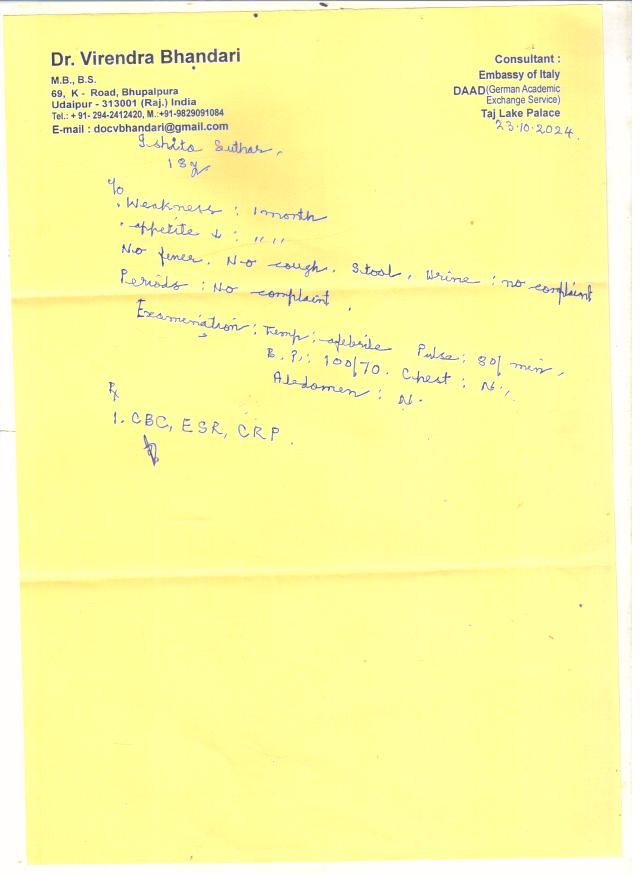 Dr. Virendra Bhandari
M.B., B.S.
69, K - Road, Bhupalpura
Udaipur - 313001 (Raj.) India
Tel.: + 91- 294-2412420, M.:+91-9829091084
E-mail : docvbhandari@gmail.com
Consultant :
Embassy of Italy
DAAD (German Academic
Exchange Service)
Taj Lake Palace
23.10.2024
Ishita Suthar,
18y
c/o
. Weakness : 1 month
. appetite ↓ : ,, ,,
No fever. No cough. Stool, Urine : no complaint
Periods : No complaint.
Examination : Temp : afebrile Pulse : 80/min,
B.P.: 100/70. Chest : N.,
Abdomen : N.
Rx
1. CBC, ESR, CRP.